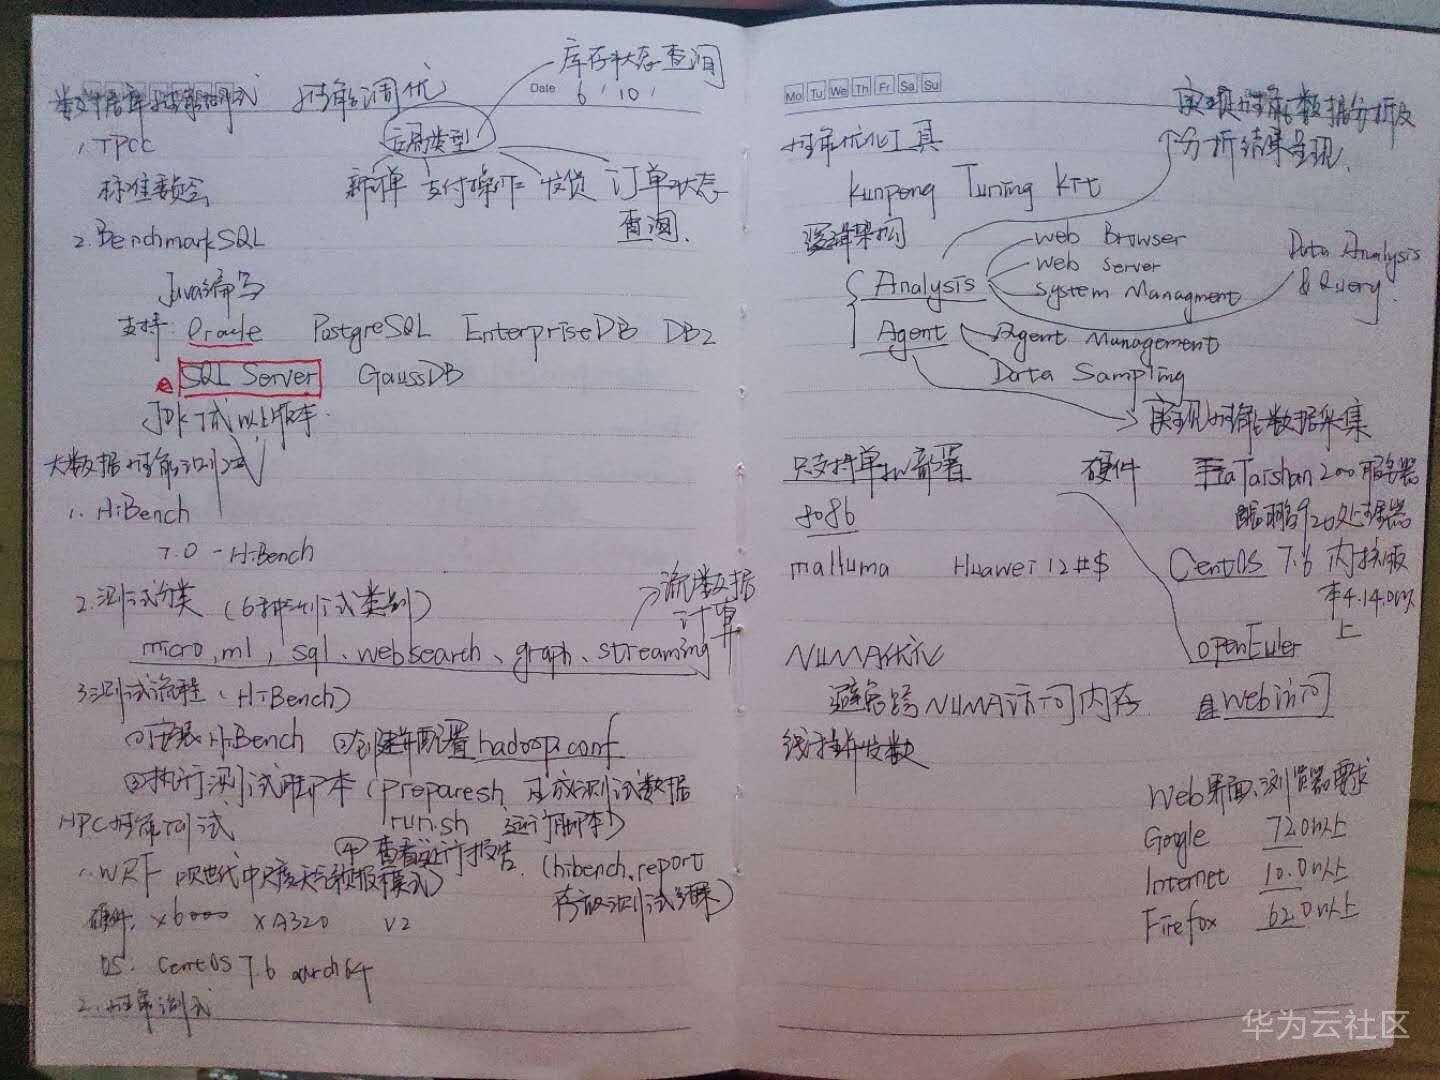 库存状态查询
性能调优
Date 6 / 10 /
1. TPCC
标准委员会
新订单 支付操作 发货 订单状态
查询.
2. BenchmarkSQL
Java编写
支持: Oracle PostgreSQL EnterpriseDB DB2
SQL Server GaussDB
JDK7或以上版本.
大数据性能测试
1. HiBench
7.0 - HiBench
2. 测试分类 (6种测试类别)
流数据
计算
micro, ml, sql、websearch、graph、streaming
3 测试流程 (HiBench)
①安装HiBench ②创建并配置hadoop.conf
③执行测试脚本 (prepare.sh 生成测试数据
run.sh 运行脚本)
HPC性能测试
④查看运行报告. (hibench.report
存放测试结果)
1. WRF
硬件: X6000 XA320 V2
OS. CentOS 7.6 aarch64
2. 性能测试
Mo Tu We Th Fr Sa Su
实现性能数据分析及
分析结果呈现.
性能优化工具
Kunpeng Tuning Kit
逻辑架构
Web Browser
Web Server
System Managment
Data Analysis
& Query.
Analysis
Agent
Agent Management
Data Sampling
实现性能数据采集
只支持单机部署 硬件 Taishan 200服务器
鲲鹏920处理器
8086
malluma Huawei12#$ CentOS 7.6 内核版
本4.14.0以
上
openEuler
NUMA优化
避免跨NUMA访问内存 Web访问
线程并发数
Web界面、浏览器要求
Google 72.0以上
Internet 10.0以上
Firefox 62.0以上
华为云社区